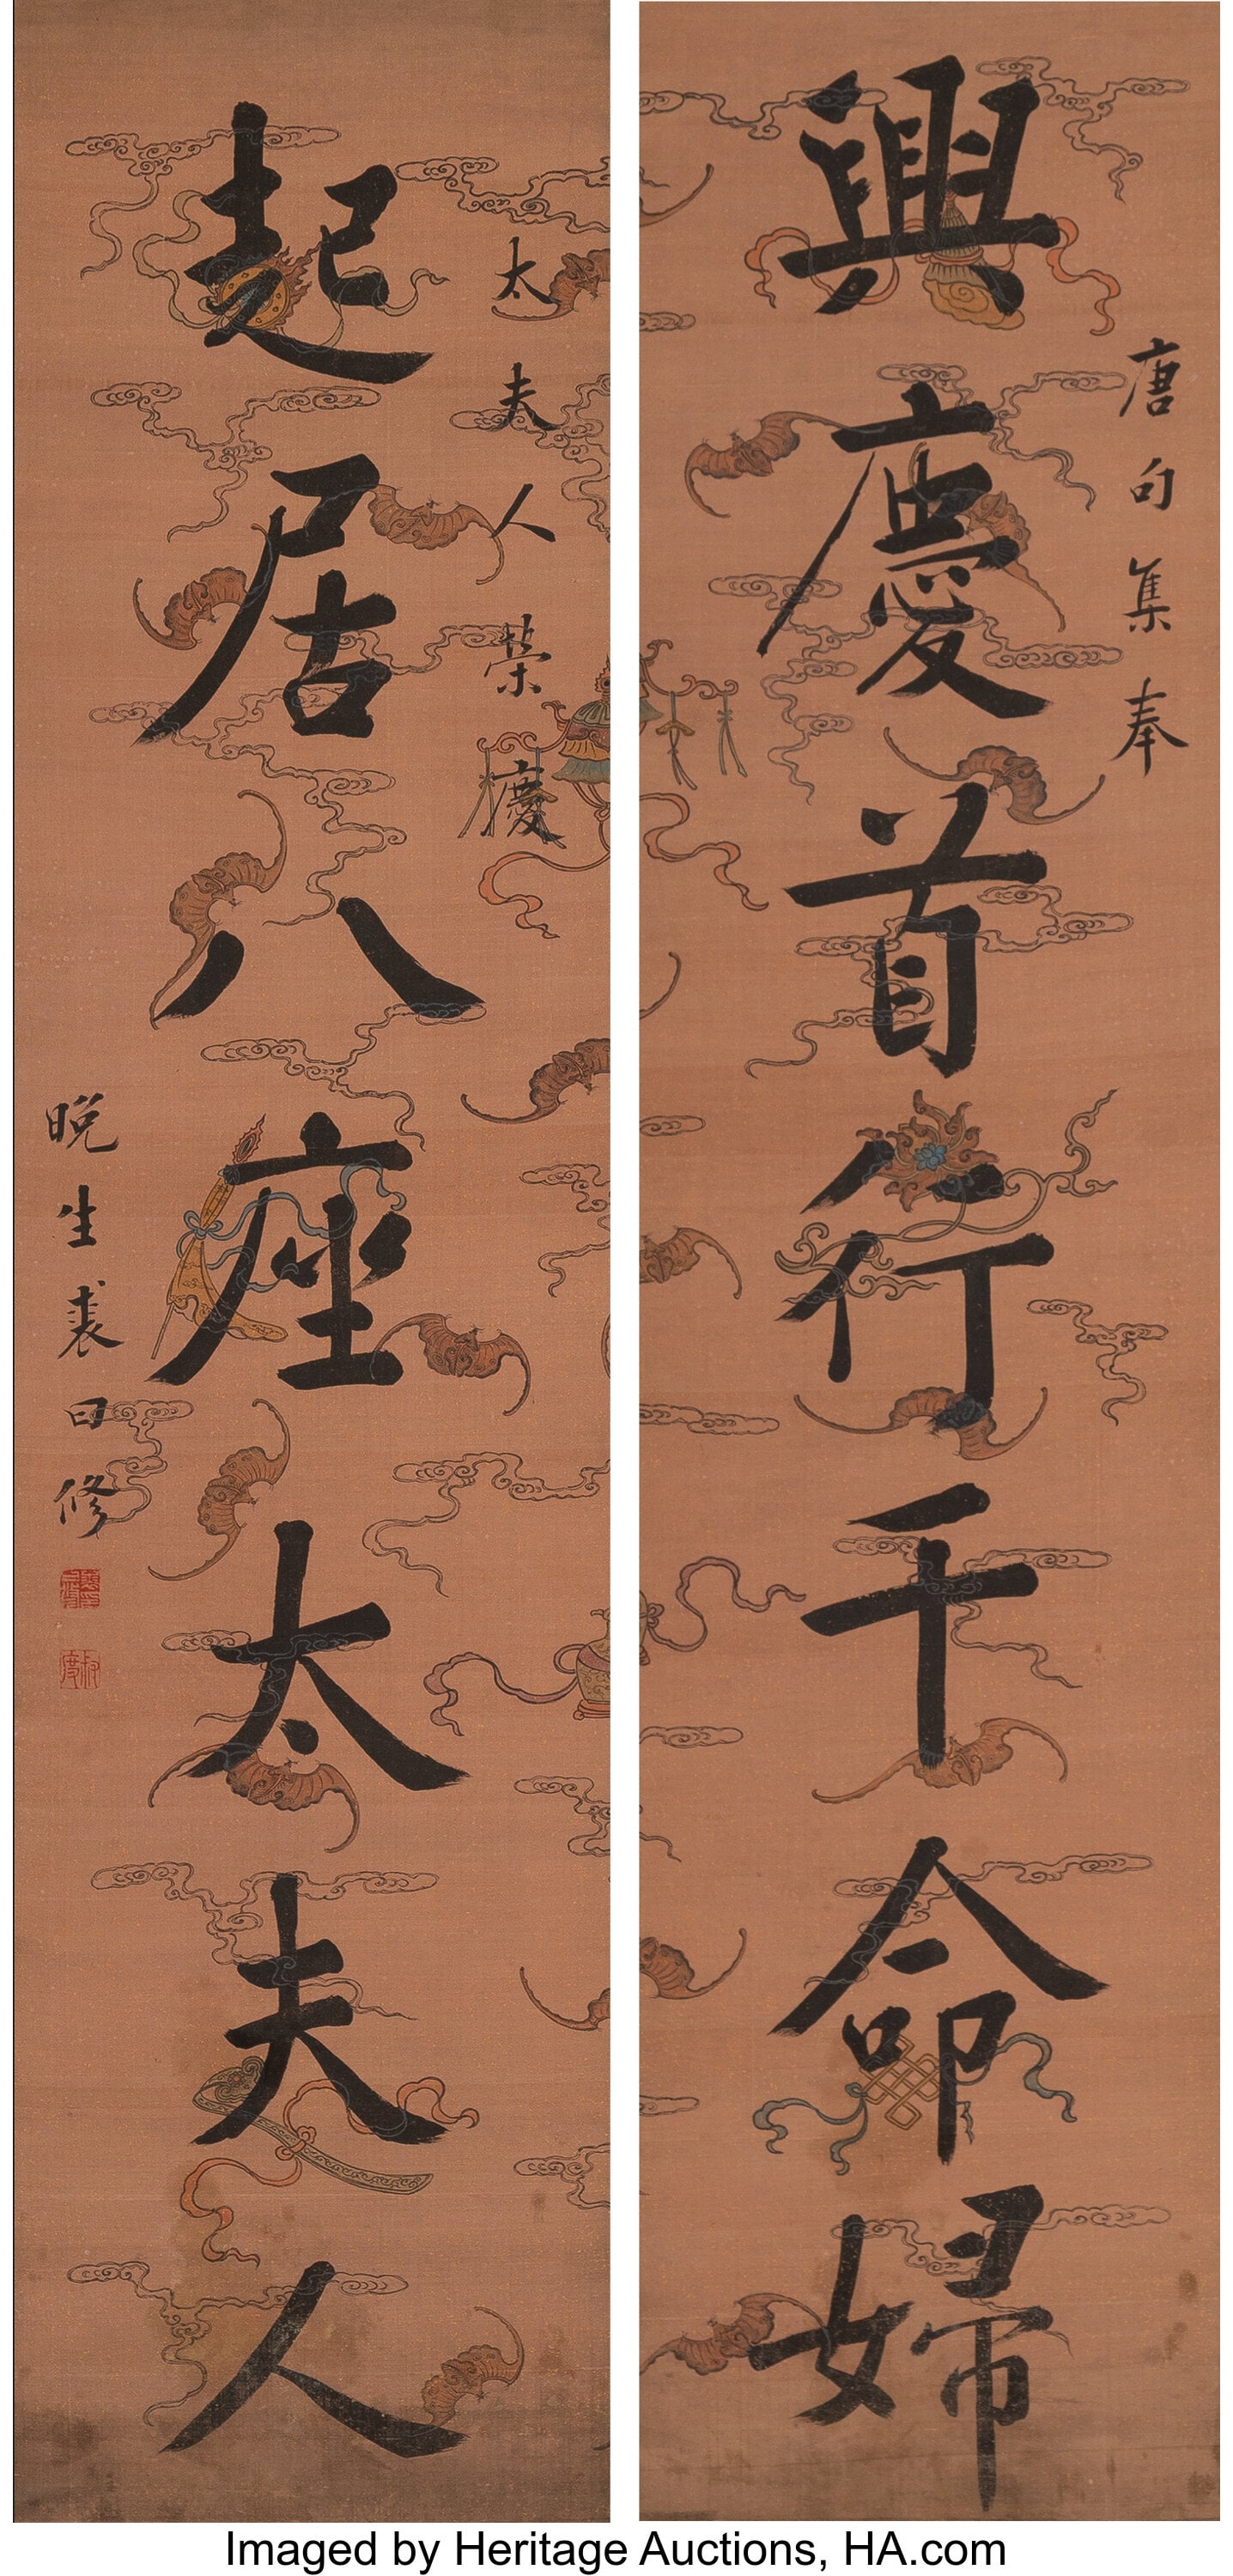 唐句集奉
興慶首行千命婦
太夫人榮慶
起居八座太夫人
晚生裘曰修
叔度
Imaged by Heritage Auctions, HA.com